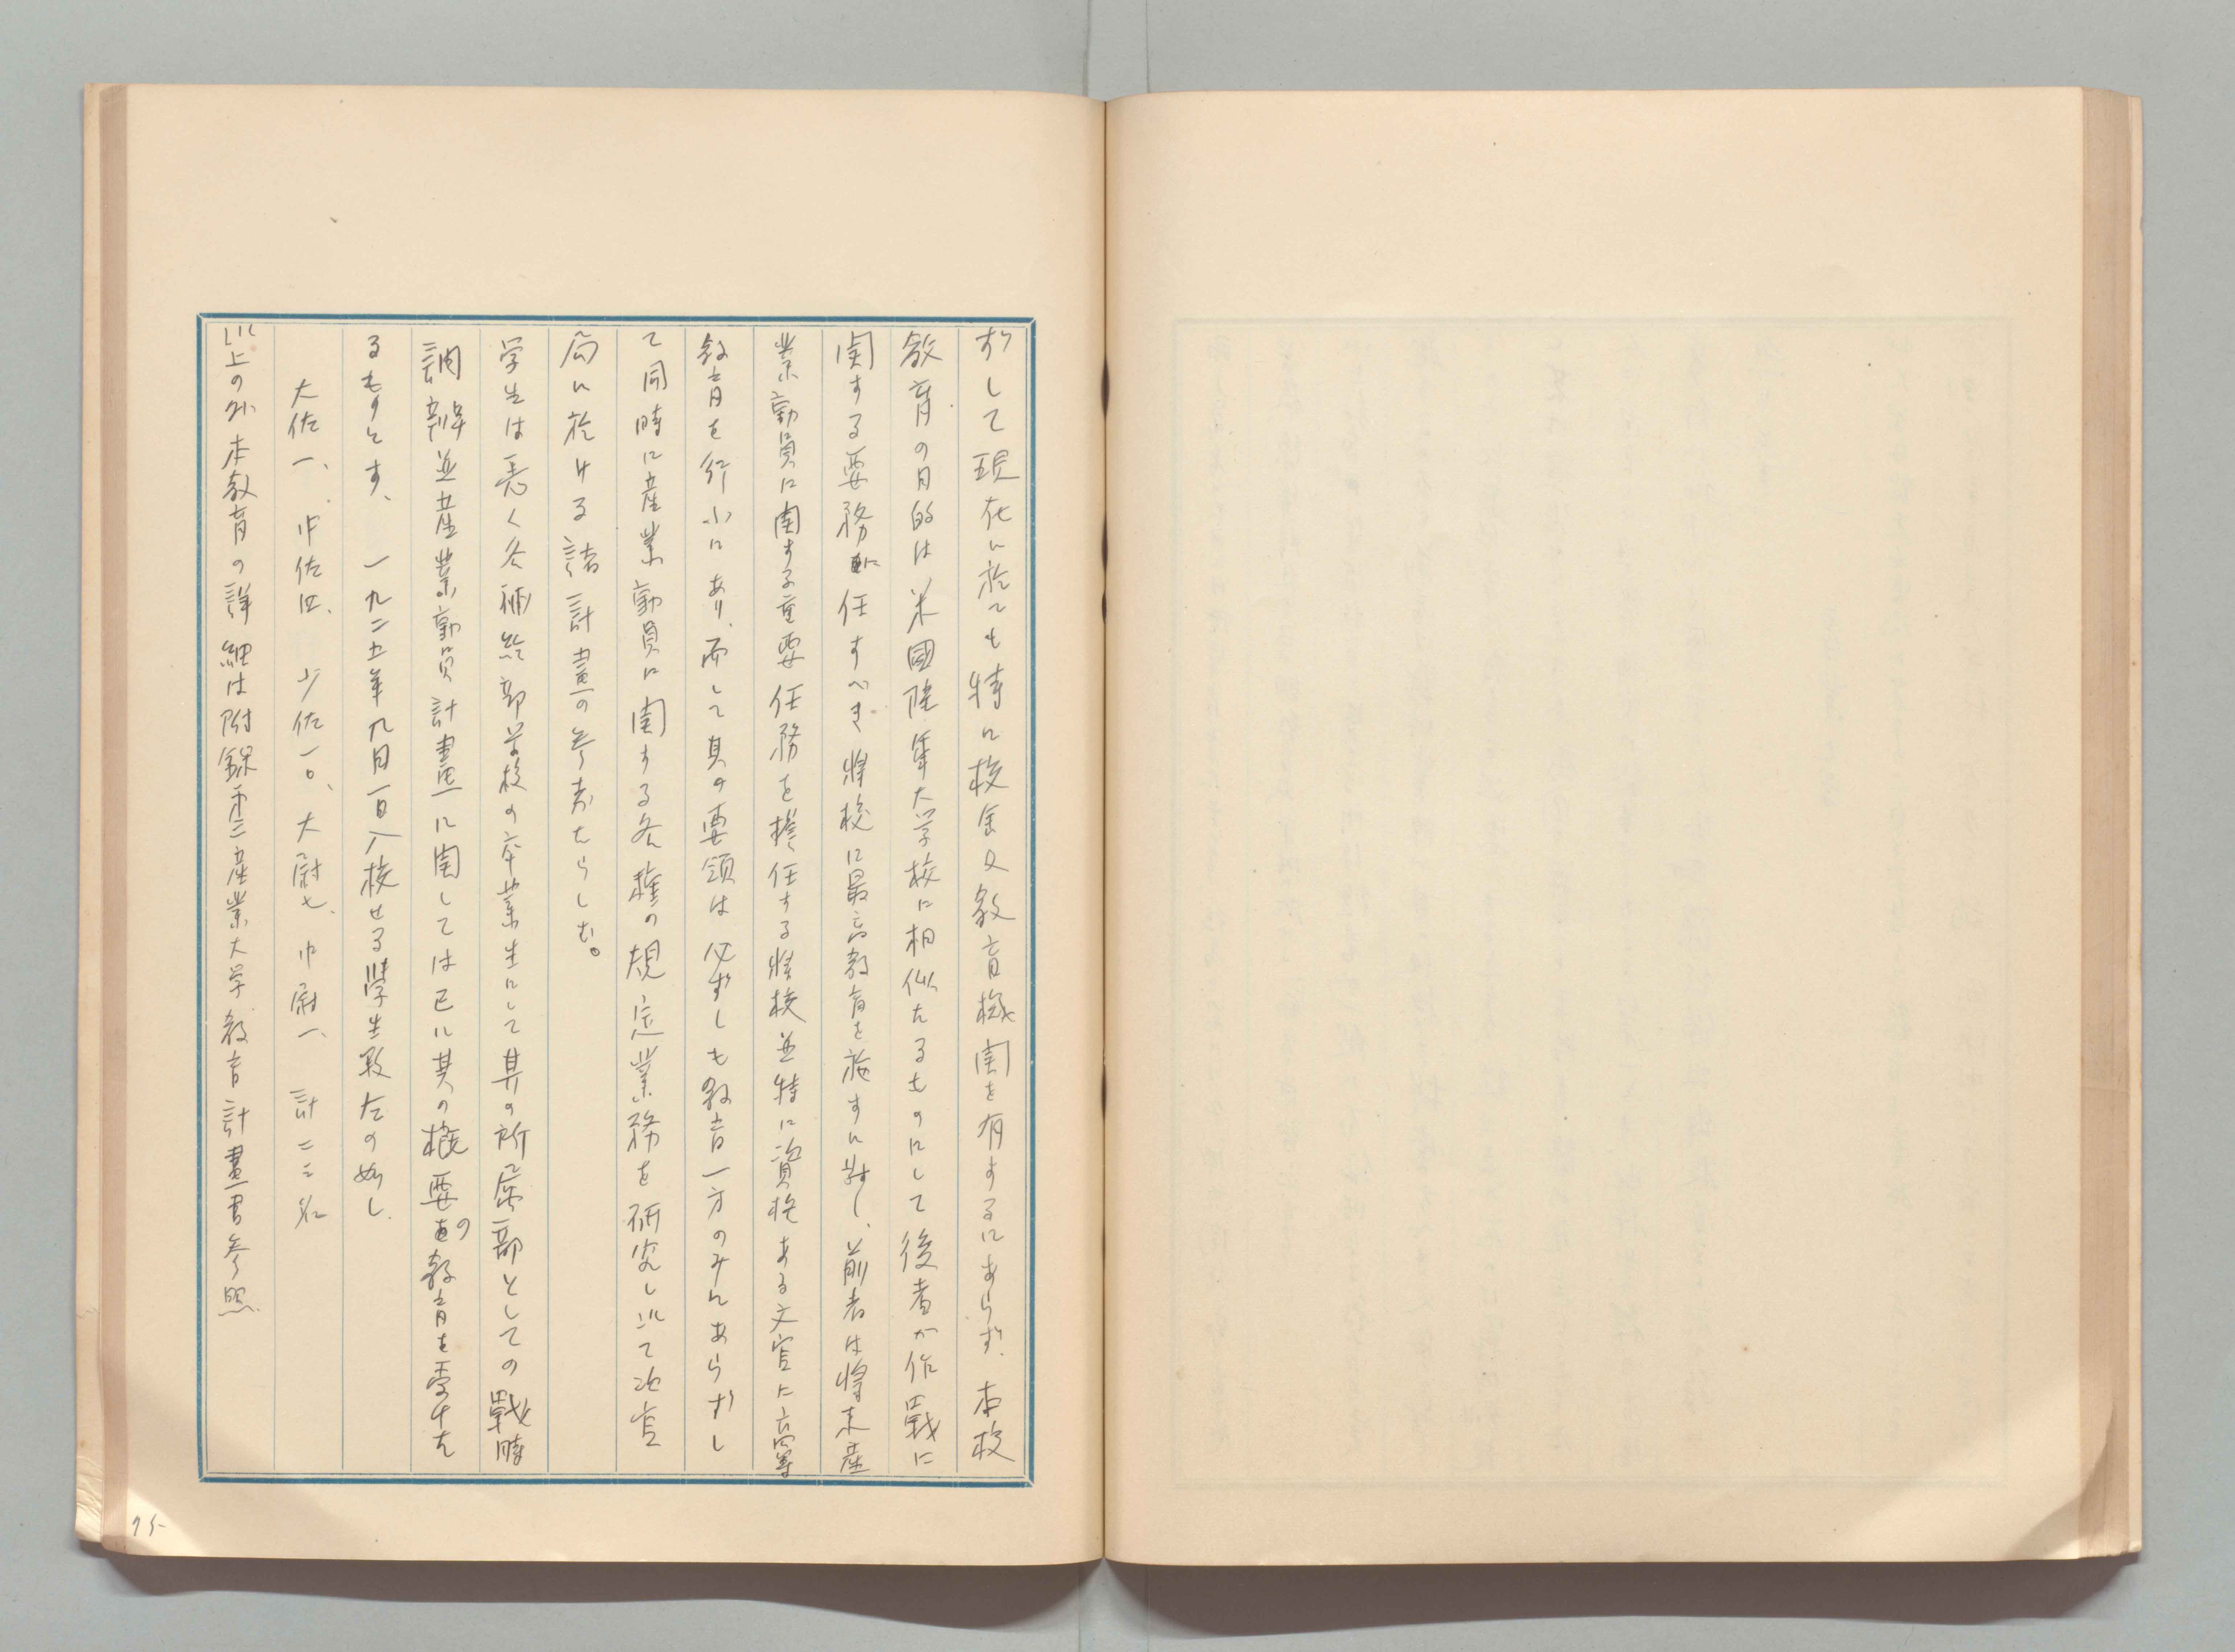 ずして現在に於ても特に校舎又教育機関を有するにあらず、本校
教育の目的は米國陸軍大学校に相似たるものにして後者が作戰に
関する要務に任すべき将校に最高教育を施すに対し、前者は将来産
業動員に関する重要任務を擔任する将校並特に資格ある文官に高等
教育を行ふにあり、而して其の要領は必ずしも教育一方のみにあらずし
て同時に産業動員に関する各種の規定業務を研究し以て当
局に於ける諸計畫の参考たらしむ。
学生は悉く各補給部学校の卒業生にして其の所属部としての戰時
調辨並産業動員計畫に関しては已に其の概要の教育を受けた
るものとす、一九二五年九月一日入校せる學生数左の如し、
大佐一、中佐四、少佐一〇、大尉七、中尉一、計二三名
以上の外本教育の詳細は附録第二産業大学教育計畫書参照
75